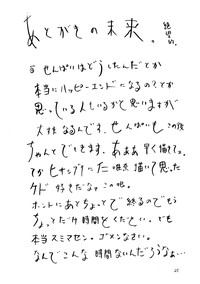 あとがきの未来。絶望的。
や せんぱいはどうしたんだとか
本当にハッピーエンドになるの?とか
思っている人もいるかと思いますが
大体なるんです、せんぱいもこの後
ちゃんとでてきます。あぁぁ早く描いてぇ。
てかヒサシブリに 描いて思った
ケド 好きだなァ この唄。
ホントにあとちょっとで終るのでもう
ちょっとだけ時間をください。でも
本当スミマセン。ゴメンなさい。
なんでこんな時間ないんだろうなぁ…